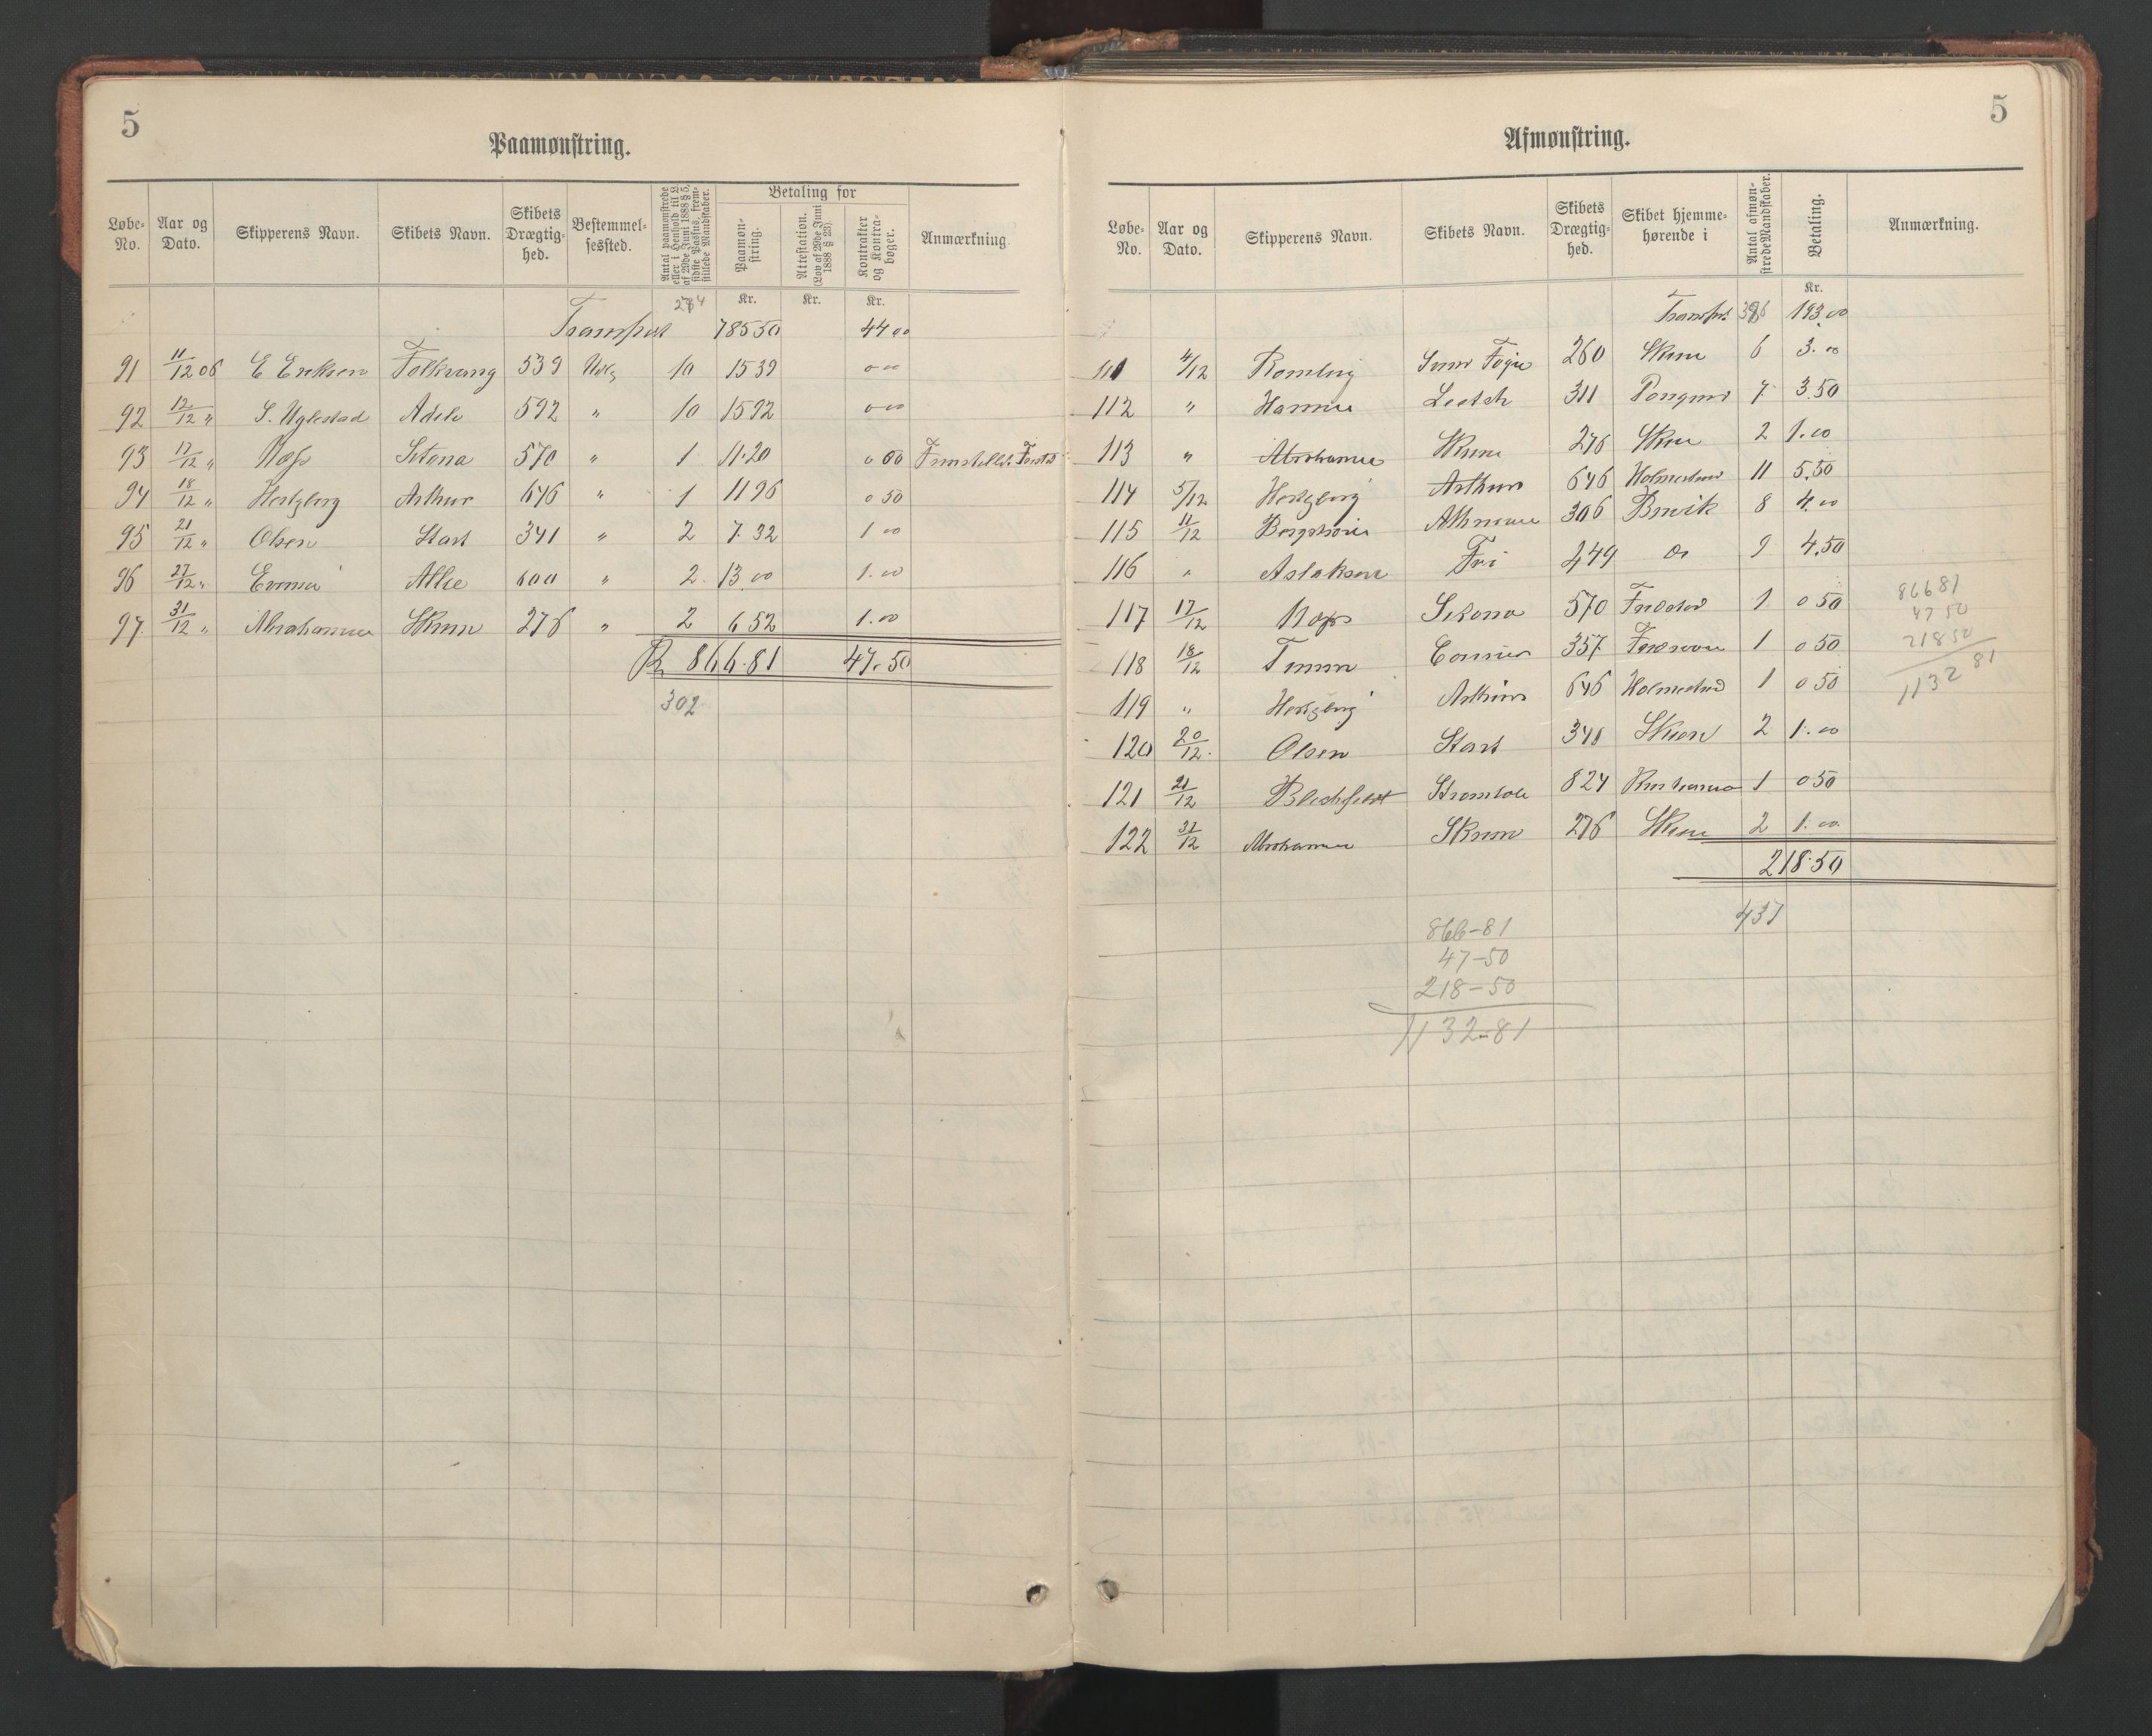 5
Paamønstring.
Løbe-No. Aar og Dato. Skipperens Navn. Skibets Navn. Skibets Drægtig-hed. Bestemmel-sessted. Antal paamønstrede eller i Henhold til L. af 29de Juni 1888 § 5, sidste Passus, frem-stillede Mandskaber. Betaling for Paamøn-string. Attestation. (Lov af 29de Juni 1888 § 23). Kontrakter og Kontra-bøger. Anmærkning
Kr. Kr. Kr.
Transport 274 785 50 44 00
91 11/12 06 E Eriksen Folkvang 539 10 15 39 0 00
92 12/12 " S. Uglestad Adele 592 " 10 15 92 0 00
93 17/12 " Næss Sitona 570 " 1 11.20 0 00
94 18/12 " Hertzberg Arthur 646 " 1 11 96 0 50
95 21/12 " Olsen Start 341 " 2 7.32 1 00
96 27/12 " 600 " 2 13 00 1.00
97 31/12 " Abrahamsen Skien 276 " 2 6 52 1.00
Kr 866.81 47.50
302
5
Afmønstring.
Løbe-No. Aar og Dato. Skipperens Navn. Skibets Navn. Skibets Drægtig-hed. Skibet hjemme-hørende i Antal afmøn-strede Mandskaber. Betaling. Anmærkning.
Kr.
Transport 386 193.00
111 4/12 260 Skien 6 3.00
112 " Hansen 311 7 3.50
113 " Abrahamsen Skien 276 Skien 2 1.00
114 5/12 Hertzberg Arthur 646 Holmestrand 11 5.50
115 11/12 306 Brevik 8 4.00
116 " Aslaksen Fri 249 do 9 4.50
117 17/12 Næss Sitona 570 Fredrikstad 1 0 50
118 18/12 357 1 0 50
119 " Hertzberg Arthur 646 Holmestrand 1 0 50
120 20/12 Olsen Start 341 Skien 2 1.00
121 21/12 824 Kristiania 1 0 50
122 31/12 Abrahamsen Skien 276 Skien 2 1.00
218.50
437
866 81
47 50
218 50
1132 81
866-81
47-50
218-50
1132-81